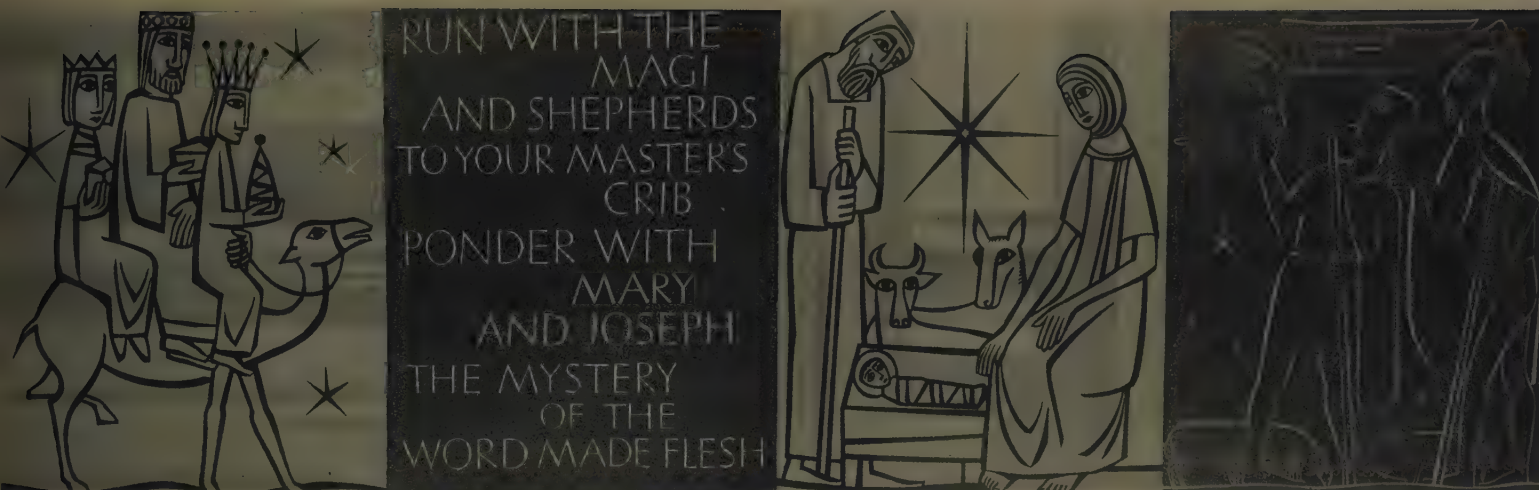 RUN WITH THE
MAGI
AND SHEPHERDS
TO YOUR MASTER'S
CRIB
PONDER WITH
MARY
AND JOSEPH
THE MYSTERY
OF THE
WORD MADE FLESH